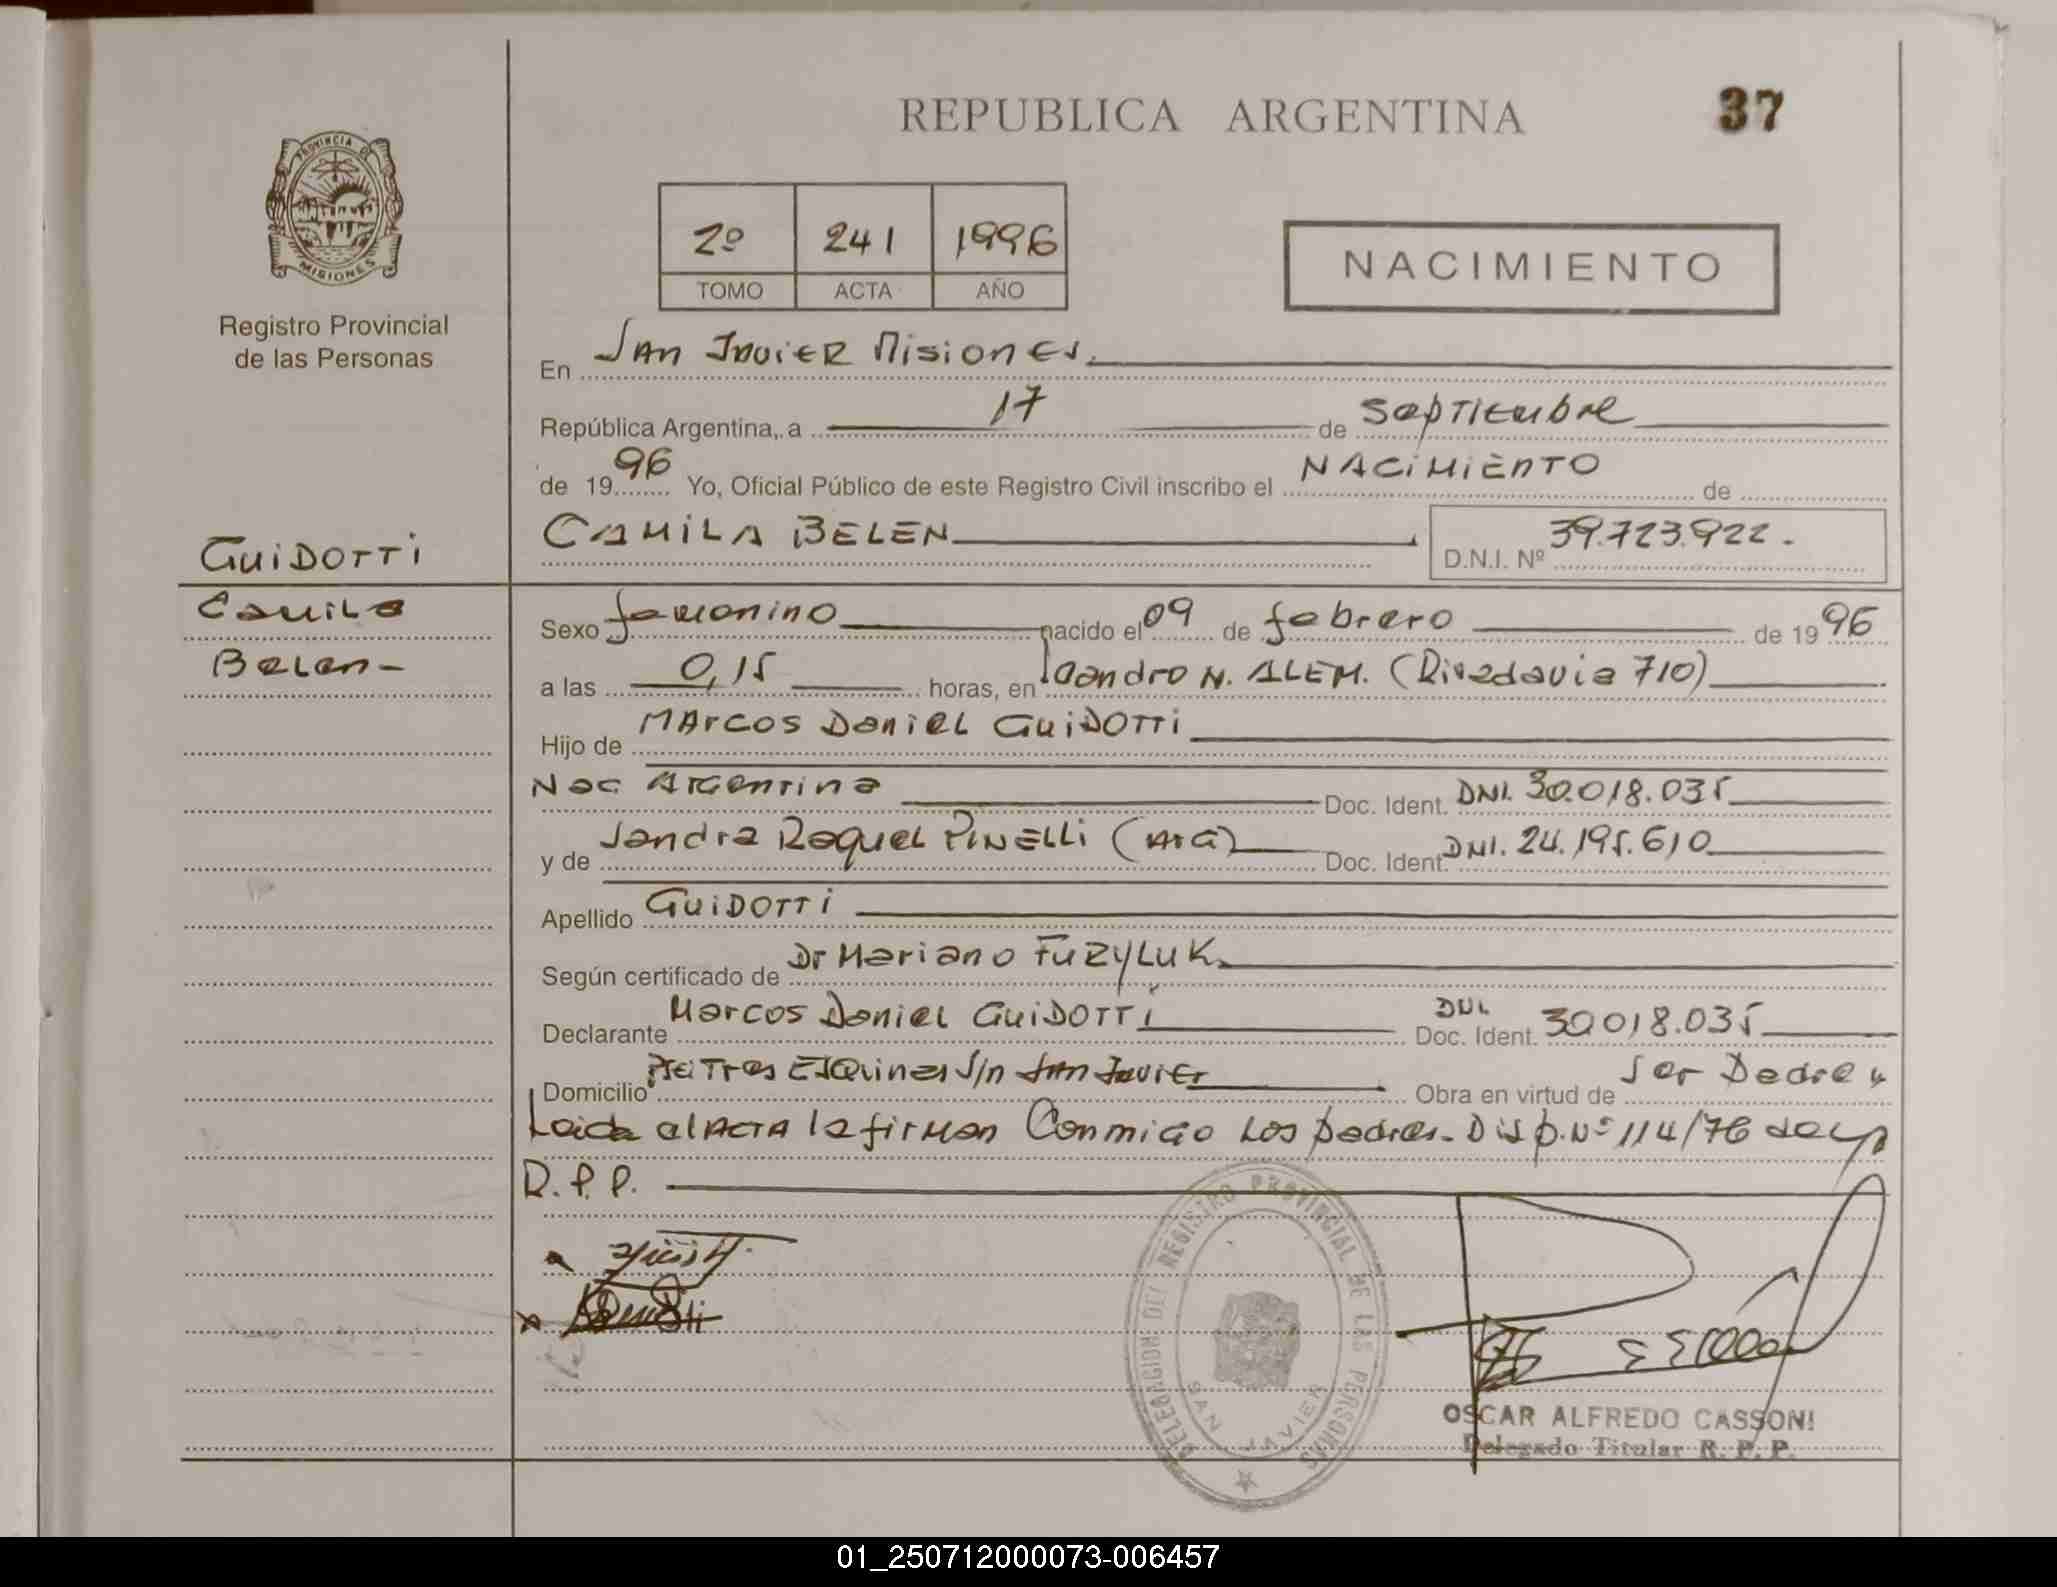 REPUBLICA ARGENTINA
37
PROVINCIA DE
MISIONES
Registro Provincial
de las Personas
2º 241 1996
TOMO ACTA AÑO
NACIMIENTO
En San Javier Misiones.
República Argentina, a 17 de Septiembre
de 1996 Yo, Oficial Público de este Registro Civil inscribo el NACIMIENTO de
CAMILA BELEN
D.N.I. Nº 39.723.922.
GUIDOTTI
Camila
Belen
Sexo femenino nacido el 09 de febrero de 1996
a las 0,15 horas, en Leandro N. ALEM. (Rivadavia 710)
Hijo de MArcos Daniel GUIDOTTi
Nac Argentina Doc. Ident. DNI. 30.018.035
y de Sandra Raquel PINELLi (ArG) Doc. Ident. DNI. 24.195.610
Apellido GUIDOTTi
Según certificado de Dr Mariano FUZYLUK
Declarante Marcos Daniel GUIDOTTi Doc. Ident. DNI 30018.035
Domicilio Tres Esquinas S/n San Javier Obra en virtud de Ser Padre y
Leida el ACTA la firman Conmigo Los padres. Disp. Nº 114/76
R.P.P.
DELEGACION DEL REGISTRO PROVINCIAL DE LAS PERSONAS
SAN JAVIER
OSCAR ALFREDO CASSONI
Delegado Titular R. P. P.
01_250712000073-006457